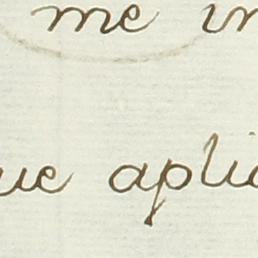 me in
ue aplic